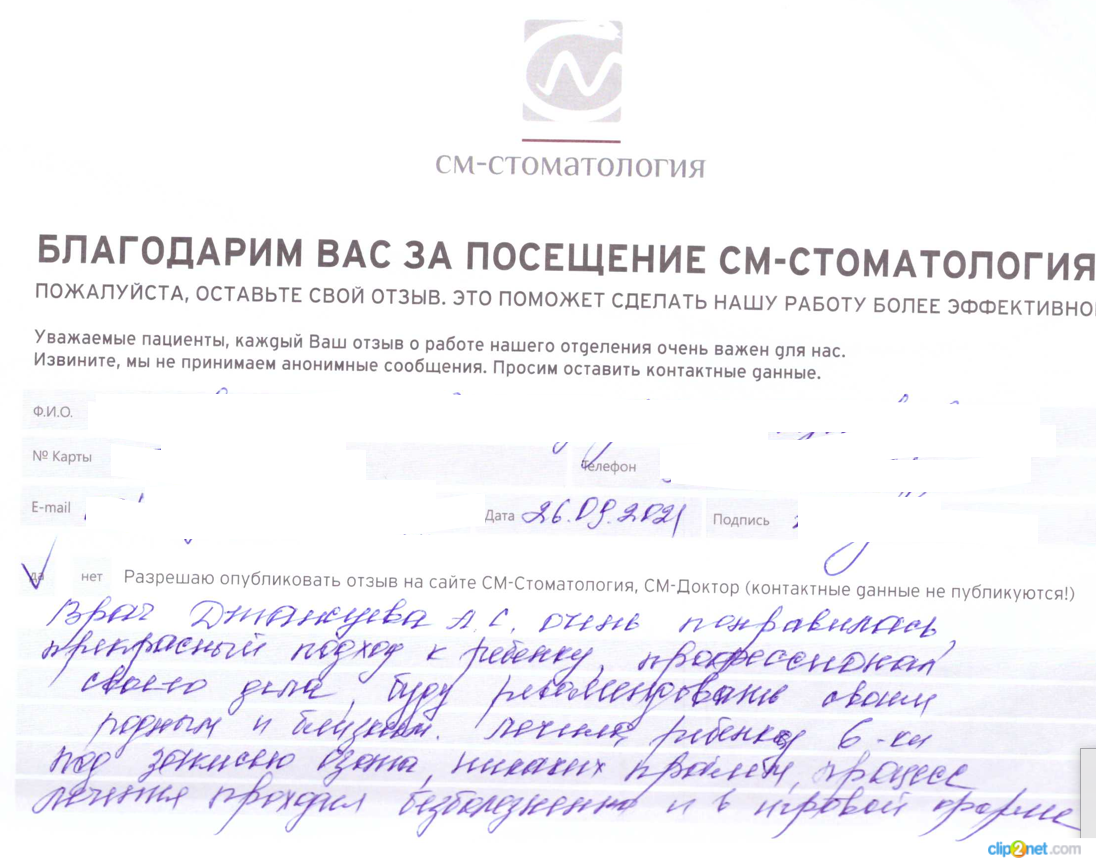 см-стоматология
БЛАГОДАРИМ ВАС ЗА ПОСЕЩЕНИЕ СМ-СТОМАТОЛОГИЯ
ПОЖАЛУЙСТА, ОСТАВЬТЕ СВОЙ ОТЗЫВ. ЭТО ПОМОЖЕТ СДЕЛАТЬ НАШУ РАБОТУ БОЛЕЕ ЭФФЕКТИВНО
Уважаемые пациенты, каждый Ваш отзыв о работе нашего отделения очень важен для нас.
Извините, мы не принимаем анонимные сообщения. Просим оставить контактные данные.
Ф.И.О.
№ Карты Телефон
E-mail Дата 26.09.2021 Подпись
да нет Разрешаю опубликовать отзыв на сайте СМ-Стоматология, СМ-Доктор (контактные данные не публикуются!)
Врач А.С. очень понравилась,
прекрасный подход к ребенку, профессионал
своего дела, буду рекомендовать своим
родным и близким. Лечили ребенку 6-ки
под закисью азота, никаких проблем, процесс
лечения проходил безболезненно и в игровой форме
clip2net.com